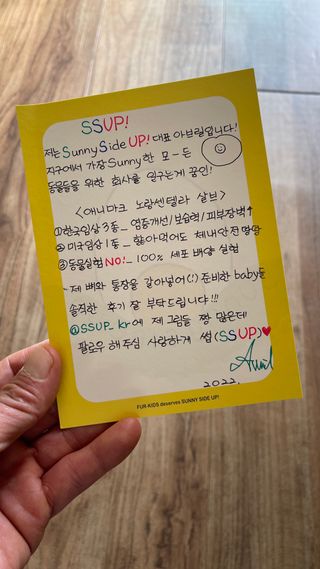 SSUP!
저는 Sunny Side UP! 대표 아브릴입니다!
지구에서 가장 Sunny한 모-든
동물들을 위한 회사를 일구는게 꿈인!
<애니마크 노랑센텔라 살브>
①한국임상 3종_ 염증개선/보습력/피부장벽↑
②미국임상 1종_ 핥아먹어도 체내안전 땅땅
③동물실험 NO!_ 100% 세포 배양 실험
제 뼈와 통장을 갈아넣어(!) 준비한 baby들
솔직한 후기 잘 부탁드립니다!!!
@SSUP_kr에 제 그림들 짱 많은데
팔로우 해주심 사랑하게 썹(SSUP)♥
2022.
FUR-KIDS deserves SUNNY SIDE UP!